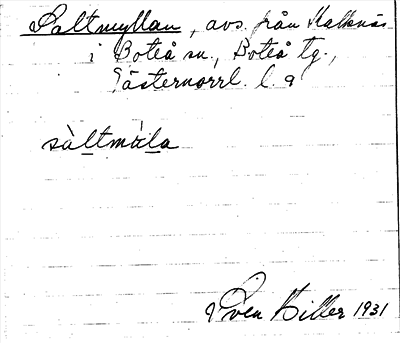 Saltmyllan, avs. från Hallsnäs
i Boteå sn., Boteå tg.,
Västernorrl. l. a
sàltmə̀la
Sven Hiller 1931